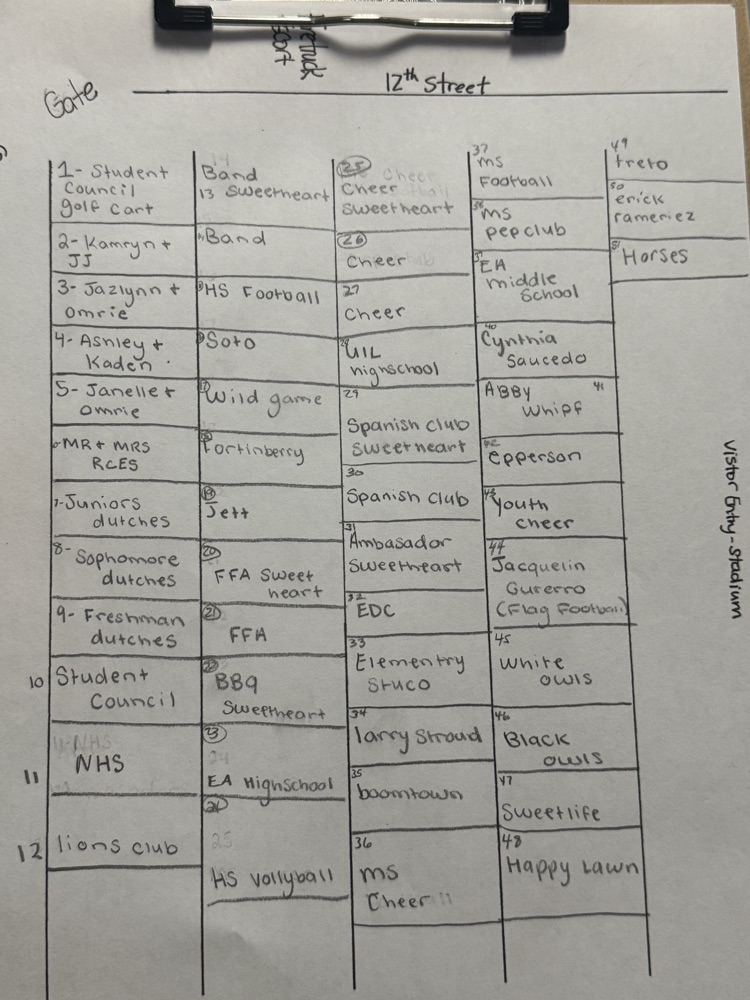 Firetruck
Escort
Gate
12th Street
1- Student
Council
golf cart
2- Kamryn +
JJ
3- Jazlynn +
Omrie
4- Ashley +
Kaden
5- Janelle +
Omrie
6- MR + MRS
RCES
7- Juniors
dutches
8- Sophomore
dutches
9- Freshman
dutches
10 Student
Council
11 NHS
12 lions club
Band
13 Sweetheart
14 Band
15 HS Football
16 Soto
17 Wild game
18 Fortinberry
19 Jett
20
FFA Sweet
heart
21
FFA
22
BBq
Sweetheart
23
24
EA Highschool
24
25
HS vollyball
25 Cheer
Cheer
Sweetheart
26
Cheer
27
Cheer
28 UIL
highschool
29
Spanish club
Sweetheart
30
Spanish club
31
Ambasador
Sweetheart
32
EDC
33
Elementry
Stuco
34
larry Stroud
35
boomtown
36
ms
Cheer
37
ms
Football
38 ms
pepclub
39 EA
middle
School
40
Cynthia
Saucedo
41
ABBY
Whipf
42
epperson
43
Youth
cheer
44
Jacquelin
Gurerro
(Flag Football)
45
White
owls
46
Black
owls
47
Sweetlife
48
Happy Lawn
49
treto
50
erick
rameriez
51
Horses
Vistor Entry-Stadium